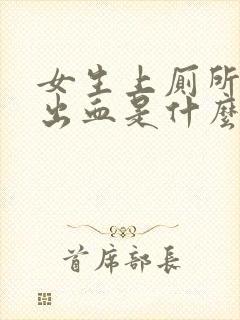 女生上厕所
出血是什麼
首席部长